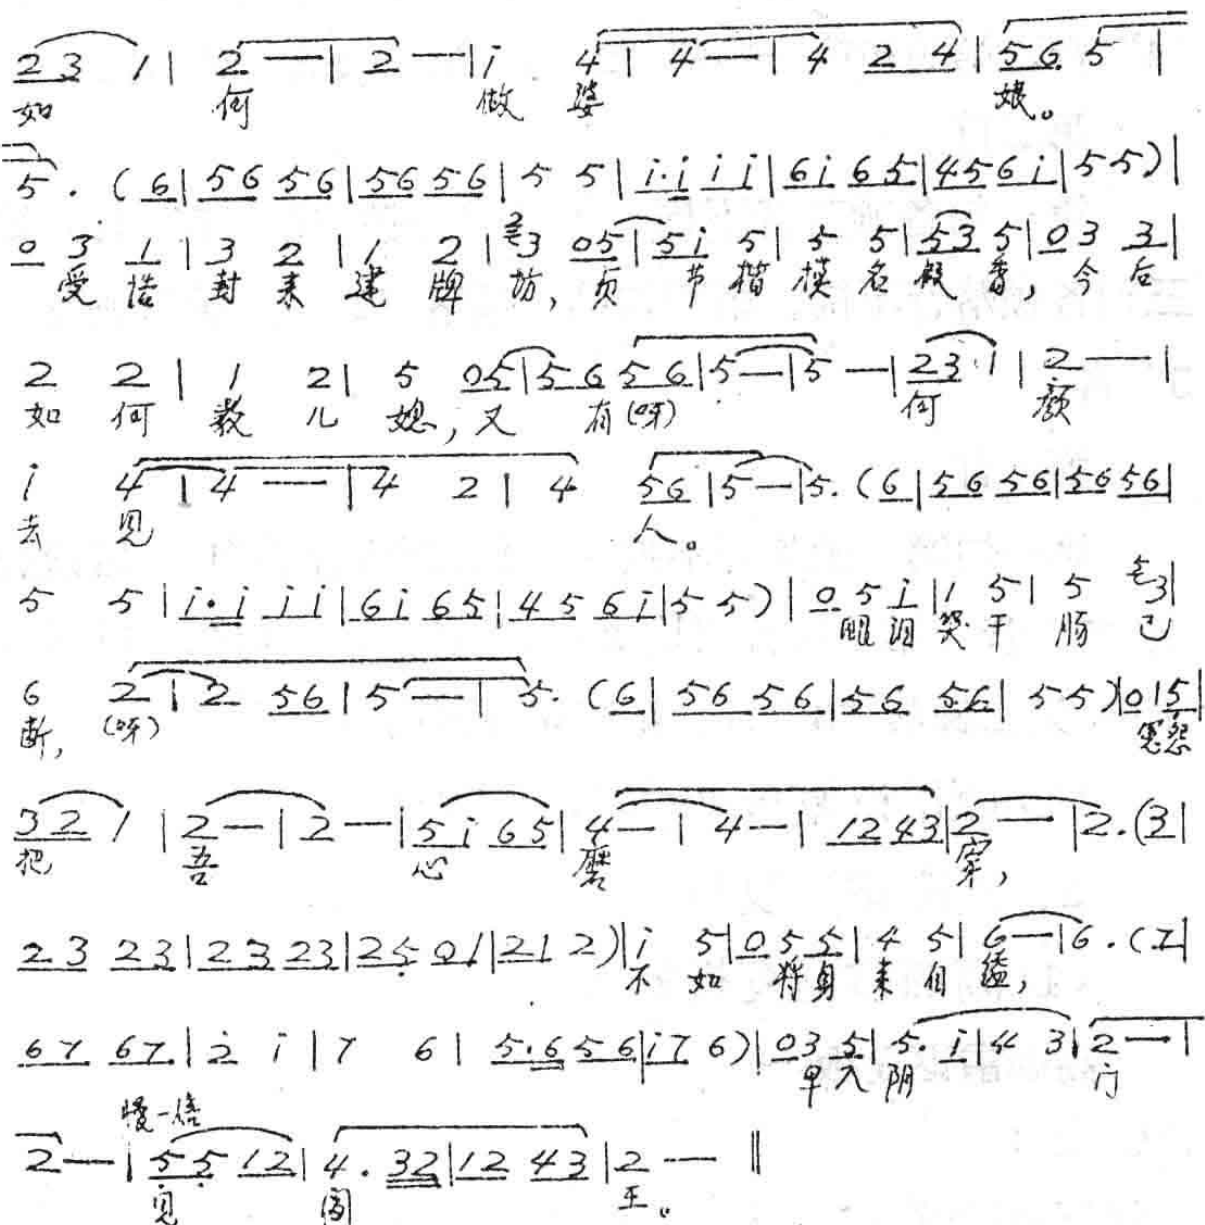 23 1 | 2 — | 2 — | i 4 | 4 — | 4 2 4 | 56. 5 |
如 何 做 婆 娘。
5. (6 | 56 56 | 56 56 | 5 5 | i.i i i | 6i 65 | 456i | 55) |
0 3 1 | 3 2 | 1 2 | 3 05 | 5i 5 | 5 5 | 53 5 | 0 3 3 |
受 诰 封 来 建 牌 坊, 贞 节 楷 模 名 假 香, 今 后
2 2 | 1 2 | 5 05 | 56 56 | 5 — | 5 — | 23 1 | 2 — |
如 何 教 儿 媳, 又 有 (呀) 何 颜
i 4 | 4 — | 4 2 | 4 56 | 5 — | 5. (6 | 56 56 | 56 56 |
去 见 人。
5 5 | i.i i i | 6i 65 | 45 6i | 5 5) | 0 5 i | 1 5 | 5 3 |
眼 泪 哭 干 肠 已
6 2 | 2 56 | 5 — | 5. (6 | 56 56 | 56 56 | 55) | 0 1 5 |
断, (呀) 冤 怨
32 1 | 2 — | 2 — | 5i 65 | 4 — | 4 — | 12 43 | 2 — | 2. (3 |
把 吾 心 磨 穿,
23 23 | 23 23 | 25 01 | 21 2) | i 5 | 0 5 5 | 4 5 | 6 — | 6. (7 |
不 如 将 身 来 自 缢,
67 67. | 2 i | 7 6 | 5.6 56 | i7 6) | 03 5 | 5. i | 4 3 | 2 — |
早 入 阴 门
慢一倍
2 — | 55 12 | 4. 32 | 12 43 | 2 — ‖
见 阎 王。